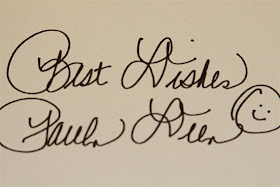 Best Dishes
Paula Deen